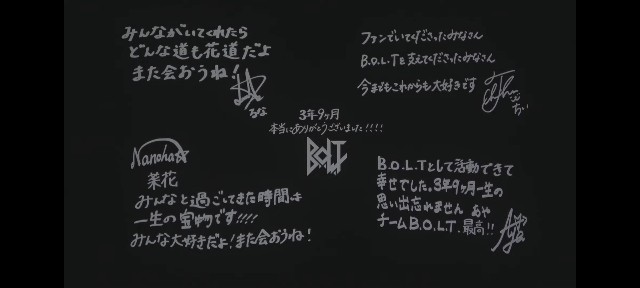 みんながいてくれたら
どんな道も花道だよ
また会おうね!
るな
ファンでいてくださったみなさん
B.O.L.Tを支えてくださったみなさん
今までもこれからも大好きです
ちい
3年9ヶ月
本当にありがとうございました!!!!
B.O.L.T
Nanoha
菜花
みんなと過ごしてきた時間は
一生の宝物です!!!!
みんな大好きだよ!また会おうね!
B.O.L.Tとして活動できて
幸せでした。3年9ヶ月一生の
思い出忘れません あや
チームB.O.L.T.最高!!
Aya